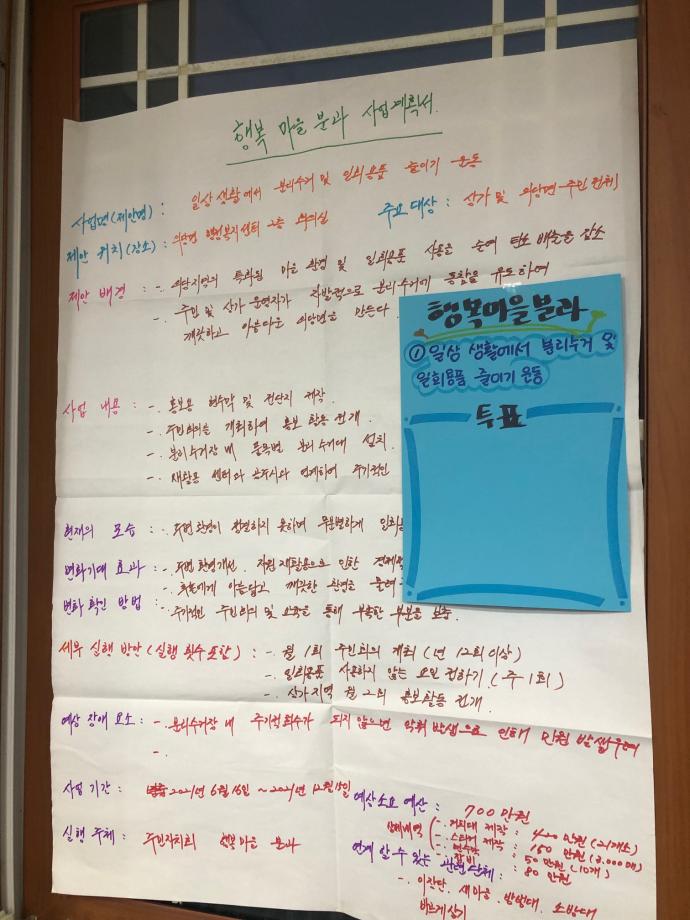 행복 마을 분과 사업계획서.
사업명(제안명) : 일상생활에서 분리수거 및 일회용품 줄이기 운동
제안 위치(장소) : 의당면 행정복지센터 2층 회의실
주요 대상 : 상가 및 의당면 주민 전체
제안 배경 : -. 의당지역의 특화된 마을 환경 및 일회용품 사용을 줄여 탄소 배출을 감소
-. 주민 및 상가 운영자가 자발적으로 분리수거에 동참을 유도하여
깨끗하고 아름다운 의당면을 만든다.
사업 내용 : -. 홍보용 현수막 및 전단지 제작.
-. 주민회의를 개최하여 홍보 활동 전개.
-. 분리수거장 내 품목별 분리수거대 설치.
-. 재활용 센터와 공주시와 연계하여 주기적인
현재의 모습 : -. 주변환경이 청결하지 못하며 무분별하게
변화기대 효과 : -. 주변 환경개선. 자원 재활용으로 인한
-. 후손에게 아름답고 깨끗한 환경을 물려
변화 확인 방법 : -. 주기적인 주민회의 및 을 통해 부족한 부분을 보충.
세부 실행 방안(실행 횟수 포함) : -. 월 1회 주민회의 개최(년 12회 이상)
-. 일회용품 사용하지 않는 요일 정하기.(주 1회)
-. 상가지역 월 2회 홍보활동 전개.
예상 장애 요소 : -. 분리수거장 내 주기적 회수가 되지 않으면 악취 발생으로 인해 민원 발생우려
-.
사업 기간 : 2021년 6월 16일 ~ 2021년 12월 15일
실행 주체 : 주민자치회 행복마을 분과
예상소요 예산 : 700 만원
-. 거치대 제작 : 420 만원 (21개소)
-. 스티커 제작 : 150 만원 (3,000매)
-. 현수막 : 50 만원 (10개)
: 80 만원
연계 할 수 있는 관련단체 :
-. 이장단. 새마을. 방범대. 소방대
바르게살기
행복마을분과
① 일상 생활에서 분리수거 및
일회용품 줄이기 운동
투표